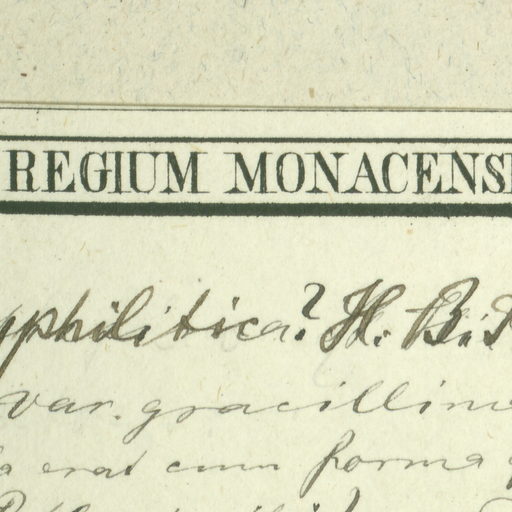 REGIUM MONACENS
yphilitica? H. B.
var. gracillim
a erat cum forma